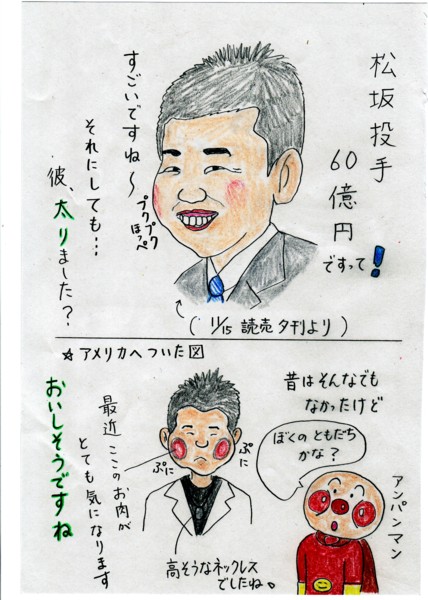 松坂投手
60億円
ですって!
すごいですね〜
それにしても…
彼、太りました?
プクプク
ほっぺ
( 11/15 読売夕刊より )
☆アメリカへついた図
昔はそんなでも
なかったけど
ぼくのともだち
かな?
アンパンマン
ぷに
ぷに
最近ここのお肉が
とても気になります
おいしそうですね
高そうなネックレス
でしたね。